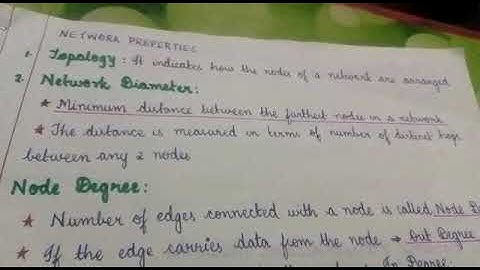 NETWORK PROPERTIES
1. Topology: It indicates how the nodes of a network are arranged
2. Network Diameter:
★ Minimum distance between the furthest nodes in a network
★ The distance is measured in terms of number of distinct hops
between any 2 nodes
Node Degree:
★ Number of edges connected with a node is called Node D
★ If the edge carries data from the node → Out Degree
In Degree: